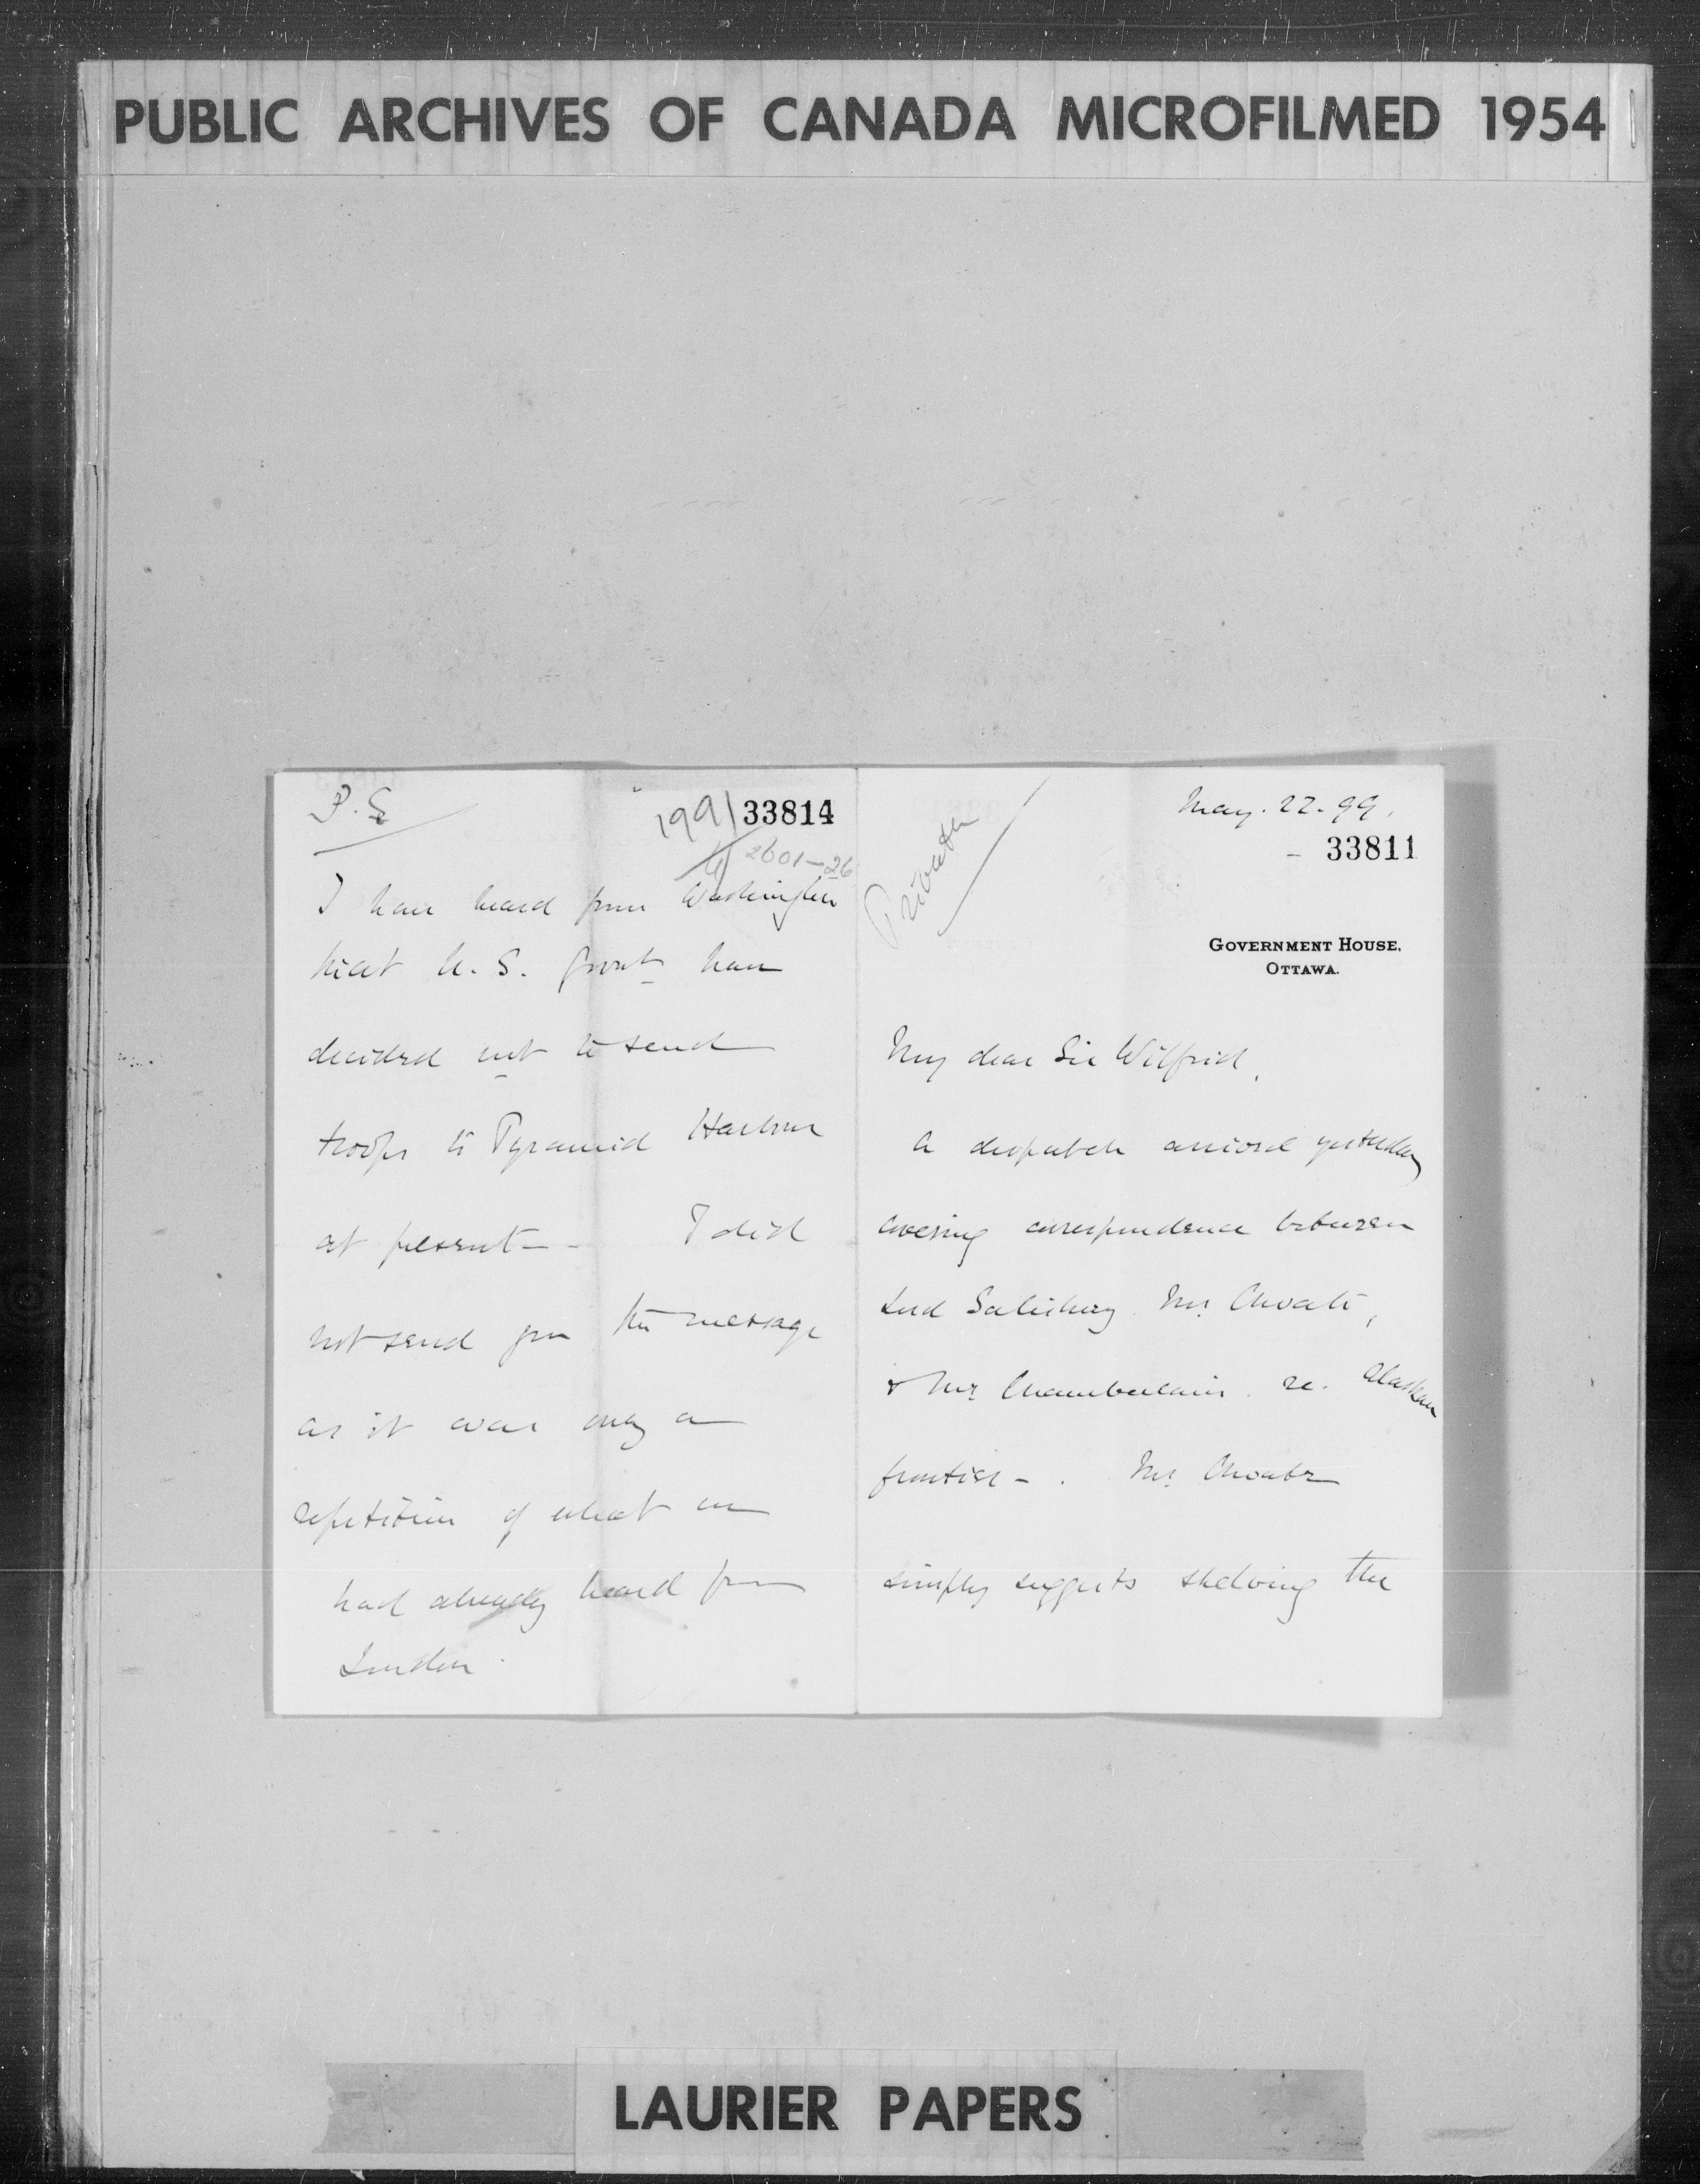 PUBLIC ARCHIVES OF CANADA MICROFILMED 1954
P.S
1991 33814
2601-26
I have heard from Washington
that U.S. Govnt have
decided not to send
troops to Pyramid Harbour
at present - - I did
not send you the message
as it was only a
repetition of what we
had already heard from
London.
Private
May. 22. 99.
- 33811
GOVERNMENT HOUSE,
OTTAWA.
My dear Sir Wilfrid,
A despatch arrived yesterday
covering correspondence between
Lord Salisbury Mr Choate,
& Mr Chamberlain. re. Alaskan
frontier - . Mr Choate
simply suggests shelving the
LAURIER PAPERS